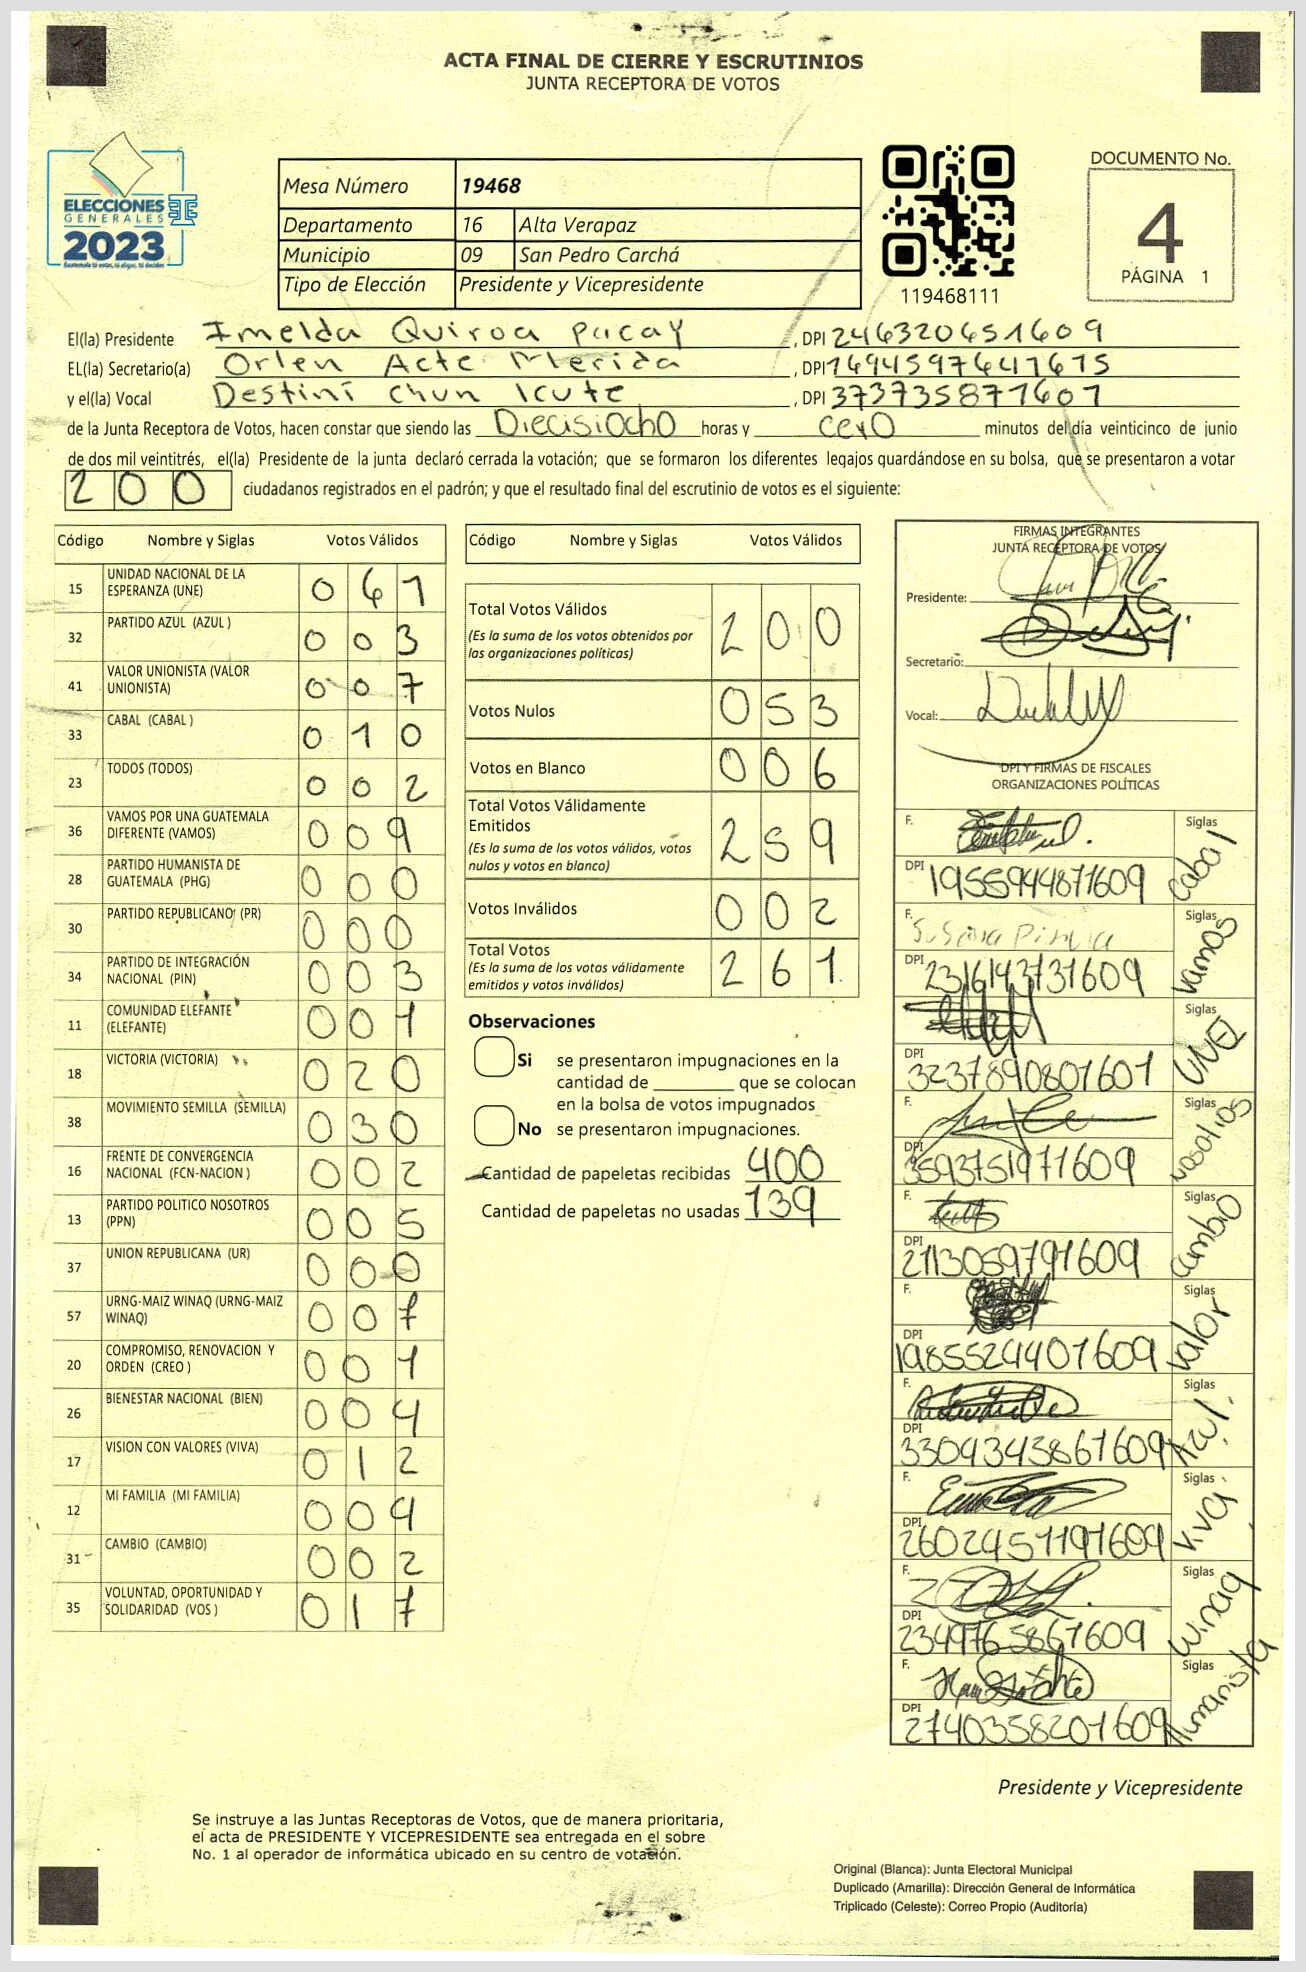 ACTA FINAL DE CIERRE Y ESCRUTINIOS
JUNTA RECEPTORA DE VOTOS
ELECCIONES
GENERALES
2023
Mesa Número 19468
Departamento 16 Alta Verapaz
Municipio 09 San Pedro Carchá
Tipo de Elección Presidente y Vicepresidente
119468111
DOCUMENTO No.
4
PÁGINA 1
El(la) Presidente Imelda Quiroa Pacay, DPI 246320651609
EL(la) Secretario(a) Orlen Acte Merida, DPI 1694597641615
y el(la) Vocal Destini Chun Icute, DPI 373735871601
de la Junta Receptora de Votos, hacen constar que siendo las Diecisiocho horas y cero minutos del día veinticinco de junio
de dos mil veintitrés, el(la) Presidente de la junta declaró cerrada la votación; que se formaron los diferentes legajos quardándose en su bolsa, que se presentaron a votar
200 ciudadanos registrados en el padrón; y que el resultado final del escrutinio de votos es el siguiente:
Código Nombre y Siglas Votos Válidos
15 UNIDAD NACIONAL DE LA ESPERANZA (UNE) 061
32 PARTIDO AZUL (AZUL ) 003
41 VALOR UNIONISTA (VALOR UNIONISTA) 007
33 CABAL (CABAL ) 010
23 TODOS (TODOS) 002
36 VAMOS POR UNA GUATEMALA DIFERENTE (VAMOS) 009
28 PARTIDO HUMANISTA DE GUATEMALA (PHG) 000
30 PARTIDO REPUBLICANO (PR) 000
34 PARTIDO DE INTEGRACIÓN NACIONAL (PIN) 003
11 COMUNIDAD ELEFANTE (ELEFANTE) 001
18 VICTORIA (VICTORIA) 020
38 MOVIMIENTO SEMILLA (SEMILLA) 030
16 FRENTE DE CONVERGENCIA NACIONAL (FCN-NACION ) 002
13 PARTIDO POLITICO NOSOTROS (PPN) 005
37 UNION REPUBLICANA (UR) 000
57 URNG-MAIZ WINAQ (URNG-MAIZ WINAQ) 007
20 COMPROMISO, RENOVACION Y ORDEN (CREO ) 001
26 BIENESTAR NACIONAL (BIEN) 004
17 VISION CON VALORES (VIVA) 012
12 MI FAMILIA (MI FAMILIA) 004
31 CAMBIO (CAMBIO) 002
35 VOLUNTAD, OPORTUNIDAD Y SOLIDARIDAD (VOS ) 017
Código Nombre y Siglas Votos Válidos
Total Votos Válidos 200
(Es la suma de los votos obtenidos por
las organizaciones políticas)
Votos Nulos 053
Votos en Blanco 006
Total Votos Válidamente
Emitidos 259
(Es la suma de los votos válidos, votos
nulos y votos en blanco)
Votos Inválidos 002
Total Votos 261
(Es la suma de los votos válidamente
emitidos y votos inválidos)
Observaciones
Si se presentaron impugnaciones en la
cantidad de ________ que se colocan
en la bolsa de votos impugnados
No se presentaron impugnaciones.
Cantidad de papeletas recibidas 400
Cantidad de papeletas no usadas 139
FIRMAS INTEGRANTES
JUNTA RECEPTORA DE VOTOS
Presidente:
Secretario:
Vocal:
DPI Y FIRMAS DE FISCALES
ORGANIZACIONES POLÍTICAS
F. Siglas cabal
DPI 1955944871609
F. Siglas vamos
DPI 2316143731609
Siglas UNE
DPI 3237890801601
F. Siglas nosotros
DPI 3593751971609
F. Siglas cambio
DPI 2113059791609
F. Siglas valor
DPI 1985524401609
F. Siglas Azul.
DPI 3304343861609
F. Siglas viva
DPI 2602451191609
F. Siglas winaq
DPI 2349765861609
F. Siglas Humanista
DPI 2740358201609
Presidente y Vicepresidente
Se instruye a las Juntas Receptoras de Votos, que de manera prioritaria,
el acta de PRESIDENTE Y VICEPRESIDENTE sea entregada en el sobre
No. 1 al operador de informática ubicado en su centro de votación.
Original (Blanca): Junta Electoral Municipal
Duplicado (Amarilla): Dirección General de Informática
Triplicado (Celeste): Correo Propio (Auditoría)